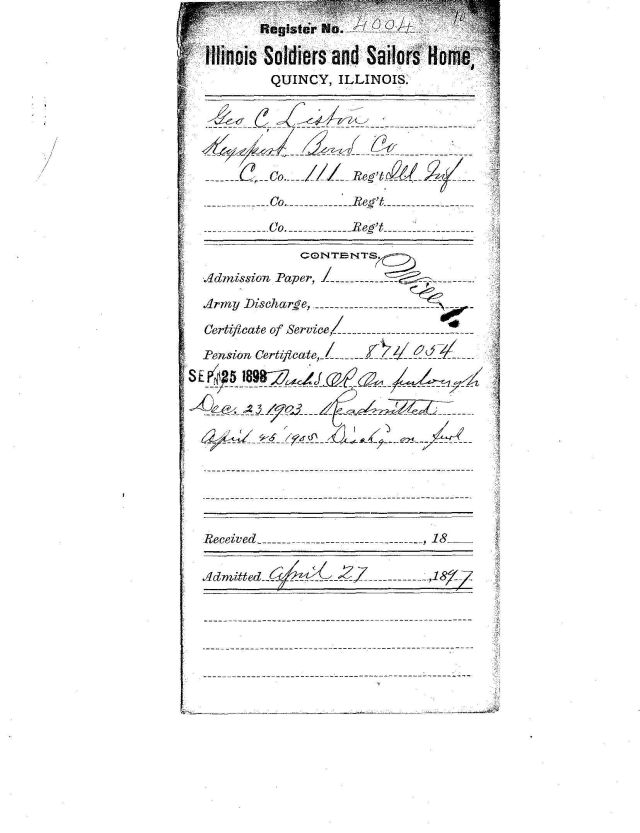 Register No. 4004
Illinois Soldiers and Sailors Home,
QUINCY, ILLINOIS.
Geo C. Liston
Keysport Bond Co
C, Co. 111 Reg't Ill Inf
Co. Reg't
Co. Reg't
CONTENTS.
Will
Admission Paper, 1
Army Discharge,
Certificate of Service, 1
Pension Certificate, 1 874054
SEP 25 1898 Disch'd OR On furlough
Dec. 23 1903 Readmitted
April 1905 Disch'g on furl
Received , 18
Admitted April 27 , 1897